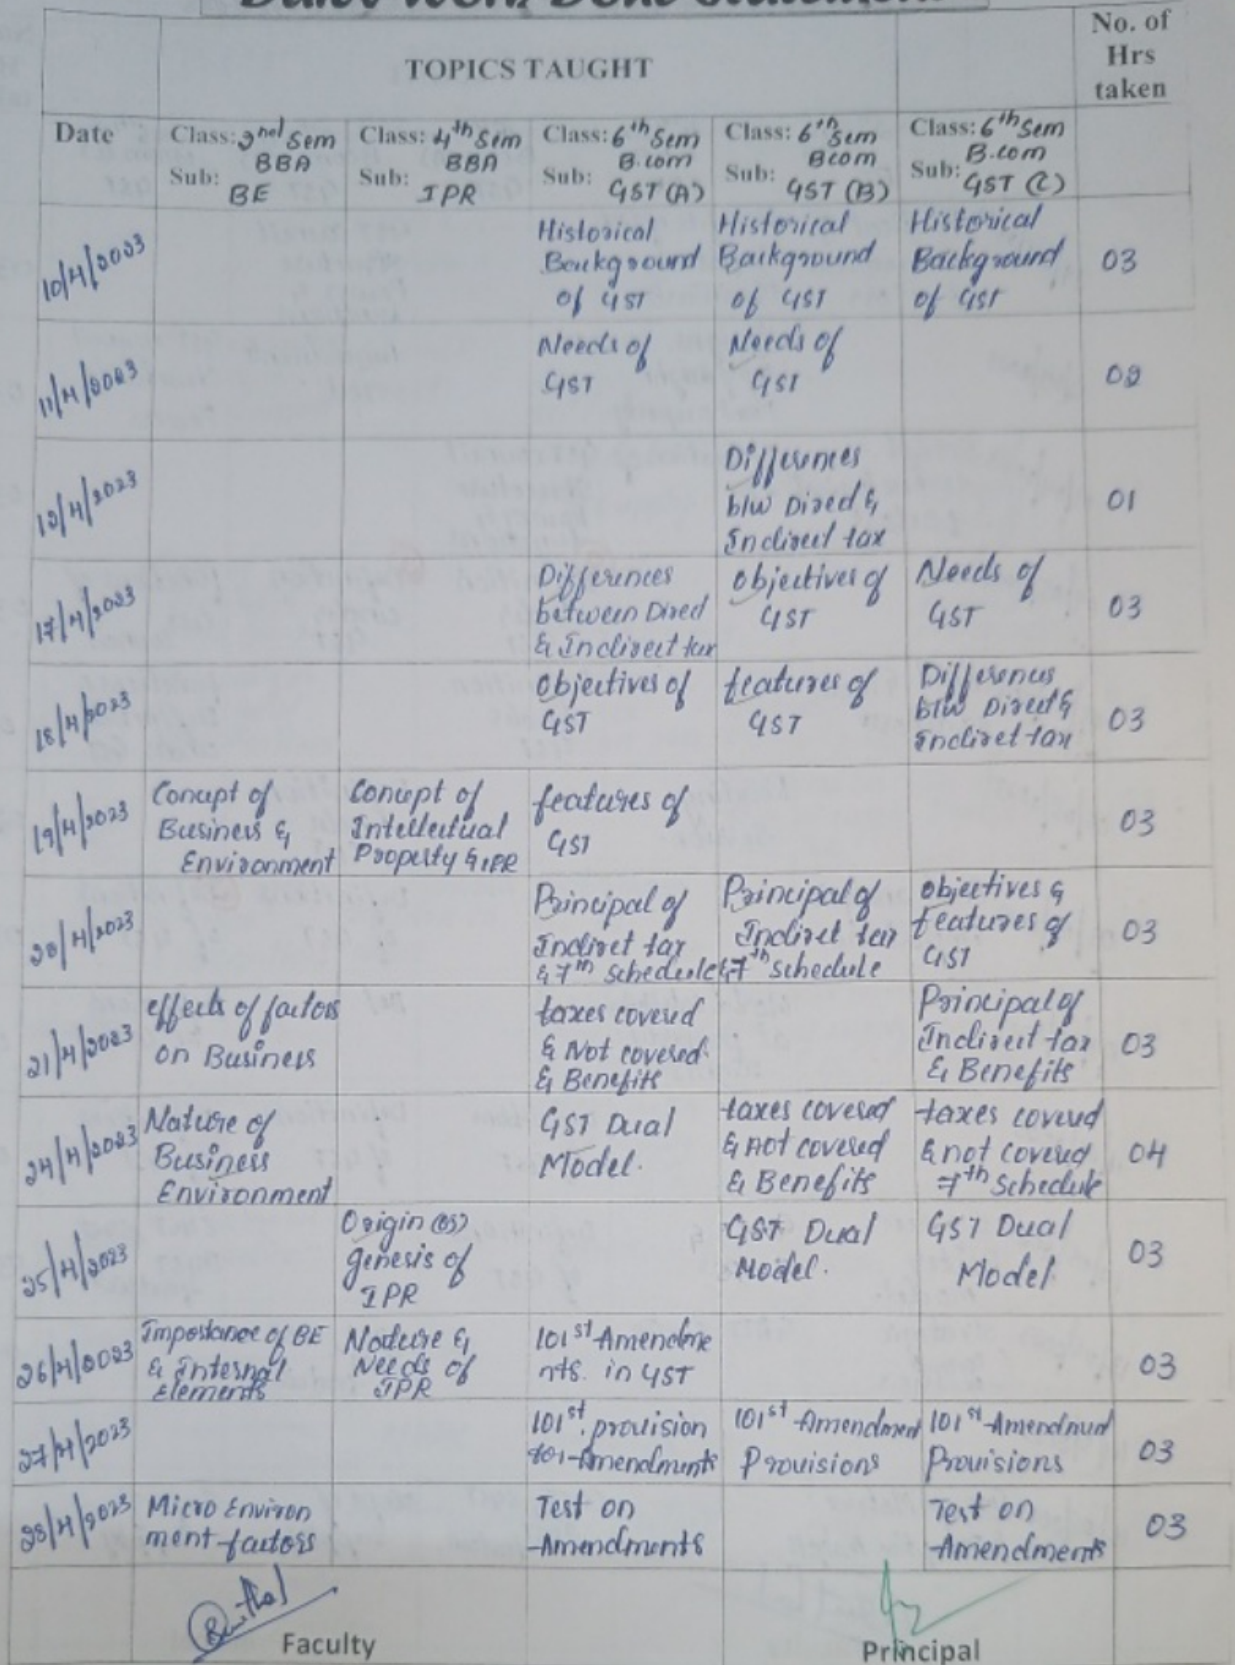 Daily Work Done Statement
TOPICS TAUGHT
No. of
Hrs
taken
Date
Class: 2nd Sem
BBA
Sub:
BE
Class: 4th Sem
BBA
Sub:
IPR
Class: 6th Sem
B.com
Sub:
GST (A)
Class: 6th Sem
Bcom
Sub:
GST (B)
Class: 6th Sem
B.com
Sub:
GST (C)
10/4/2023
Historical
Background
of GST
Historical
Background
of GST
Historical
Background
of GST
03
11/4/2023
Needs of
GST
Needs of
GST
02
/4/2023
Differences
b/w Direct &
Indirect tax
01
17/4/2023
Differences
between Direct
& Indirect tax
Objectives of
GST
Needs of
GST
03
18/4/2023
Objectives of
GST
features of
GST
Differences
b/w Direct &
Indiret tax
03
19/4/2023
Concept of
Business &
Environment
Concept of
Intellectual
Property & IPR
features of
GST
03
20/4/2023
Principal of
Indiret tax
& 7th Schedule
Principal of
Indiret tax
& 7th Schedule
objectives &
features of
GST
03
21/4/2023
effects of factors
on Business
taxes covered
& Not covered
& Benefits
Principal of
Indirect tax
& Benefits
03
24/4/2023
Nature of
Business
Environment
GST Dual
Model.
taxes covered
& not covered
& Benefits
taxes covered
& not covered
7th Schedule
04
25/4/2023
Origin (or)
genesis of
IPR
GST Dual
Model.
GST Dual
Model
03
26/4/2023
Importance of BE
& Internal
Elements
Nature &
Needs of
IPR
101st Amendme
nts. in GST
03
27/4/2023
101st provision
Amendments
101st Amendment
Provisions
101st Amendment
Provisions
03
28/4/2023
Micro Environ
ment factors
Test on
Amendments
Test on
Amendments
03
Faculty
Principal